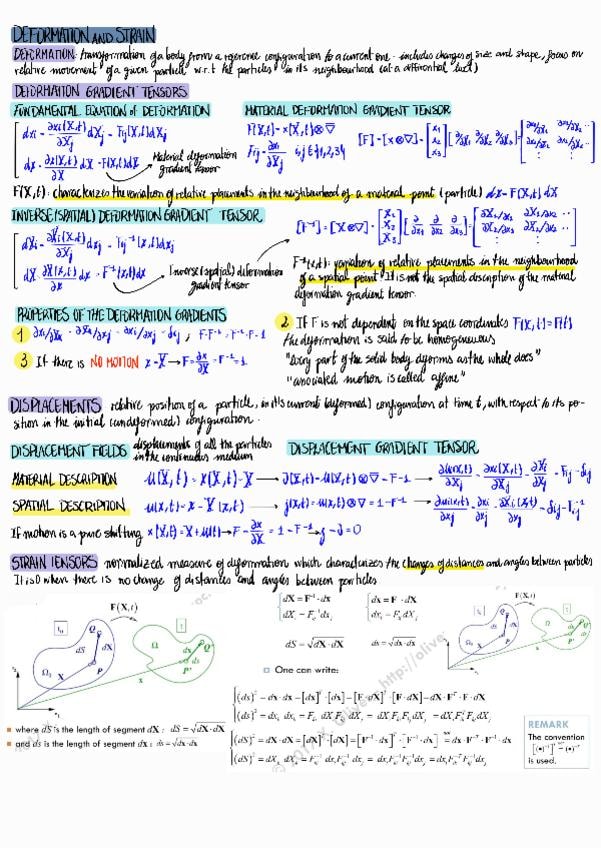 DEFORMATION AND STRAIN
DEFORMATION: transformation of a body from a reference configuration to a current one. includes changes of size and shape, focus on
relative movement of a given particle w.r.t the particles in its neighbourhood (at a differential level)
DEFORMATION GRADIENT TENSORS
FUNDAMENTAL EQUATION of DEFORMATION
dxi = ∂xi(X,t)/∂Xj dXj = Fij(X,t)dXj
dx = ∂x(X,t)/∂X dX = F(X,t)dX
Material deformation
gradient tensor
MATERIAL DEFORMATION GRADIENT TENSOR
F(X,t) = x(X,t)⊗∇
Fij = ∂xi/∂Xj i,j ∈ {1,2,3}
[F] = [x⊗∇] = [x1 x2 x3] [∂/∂X1 ∂/∂X2 ∂/∂X3] = [∂x1/∂X1 ∂x1/∂X2 ..
F(X,t): characterizes the variation of relative placements in the neighbourhood of a material point (particle) dx = F(X,t) dX
INVERSE (SPATIAL) DEFORMATION GRADIENT TENSOR
dXi = ∂Xi(x,t)/∂xj dxj = Fij⁻¹(x,t)dxj
dX = ∂X(x,t)/∂x dx = F⁻¹(x,t)dx
Inverse (spatial) deformation
gradient tensor
[F⁻¹] = [X⊗∇] = [X1 X2 X3] [∂/∂x1 ∂/∂x2 ∂/∂x3] = [∂X1/∂x1 ∂X1/∂x2 ..
F⁻¹(x,t): variation of relative placements in the neighbourhood
of a spatial point. It is not the spatial description of the material
deformation gradient tensor.
PROPERTIES OF THE DEFORMATION GRADIENTS
1 ∂xi/∂Xk · ∂Xk/∂xj = ∂xi/∂xj = δij ; F·F⁻¹ = F⁻¹·F = 1
2 If F is not dependent on the space coordinates F(X,t) = F(t)
the deformation is said to be homogeneous
"Every part of the solid body deforms as the whole does"
"associated motion is called affine"
3 If there is NO MOTION x = X → F = ∂x/∂X = F⁻¹ = 1
DISPLACEMENTS relative position of a particle, in its current (deformed) configuration at time t, with respect to its po-
sition in the initial (undeformed) configuration.
DISPLACEMENT FIELDS displacements of all the particles
in the continuous medium
DISPLACEMENT GRADIENT TENSOR
MATERIAL DESCRIPTION U(X,t) = x(X,t) - X → J(X,t) = U(X,t)⊗∇ = F - 1 → ∂Ui(X,t)/∂Xj = ∂xi(X,t)/∂Xj - ∂Xi/∂Xj = Fij - δij
SPATIAL DESCRIPTION u(x,t) = x - X(x,t) → j(x,t) = u(x,t)⊗∇ = 1 - F⁻¹ → ∂ui(x,t)/∂xj = ∂xi/∂xj - ∂Xi(x,t)/∂xj = δij - Fij⁻¹
If motion is a pure shifting x(X,t) = X + U(t) → F = ∂x/∂X = 1 = F⁻¹ → j = J = 0
STRAIN TENSORS normalized measure of deformation which characterizes the changes of distances and angles between particles
It is 0 when there is no change of distances and angles between particles
F(X,t)
t0
t
Q
dS
dX
P
Ω0
X
Ω
Q'
ds
dx
P'
x
where dS is the length of segment dX : dS = √dX·dX
and ds is the length of segment dx : ds = √dx·dx
dX = F⁻¹·dx
dXi = Fij⁻¹ dxj
dx = F·dX
dxi = Fij dXj
dS = √dX·dX
ds = √dx·dx
One can write:
(ds)² = dx·dx = [dx]ᵀ·[dx] = [F·dX]ᵀ·[F·dX] = dX·Fᵀ·F·dX
(ds)² = dxk dxk = Fki dXi Fkj dXj = dXi Fki Fkj dXj = dXi Fikᵀ Fkj dXj
(dS)² = dX·dX = [dX]ᵀ·[dX] = [F⁻¹·dx]ᵀ·[F⁻¹·dx] = dx·F⁻ᵀ·F⁻¹·dx
(dS)² = dXk dXk = Fki⁻¹ dxi Fkj⁻¹ dxj = dxi Fki⁻¹ Fkj⁻¹ dxj = dxi Fik⁻ᵀ Fkj⁻¹ dxj
F(X,t)
REMARK
The convention
[(•)⁻¹]ᵀ = (•)⁻ᵀ
is used.